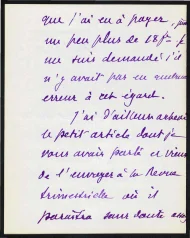 que j'ai eu à payer,
un peu plus de 18f.
me suis demandé s'il
n'y avait par eu
erreur à cet égard.
J'ai d'ailleurs achevé
le petit article dont je
vous avais parlé et viens
de l'envoyer à la Revue
trimestrielle où il
paraîtra sans doute